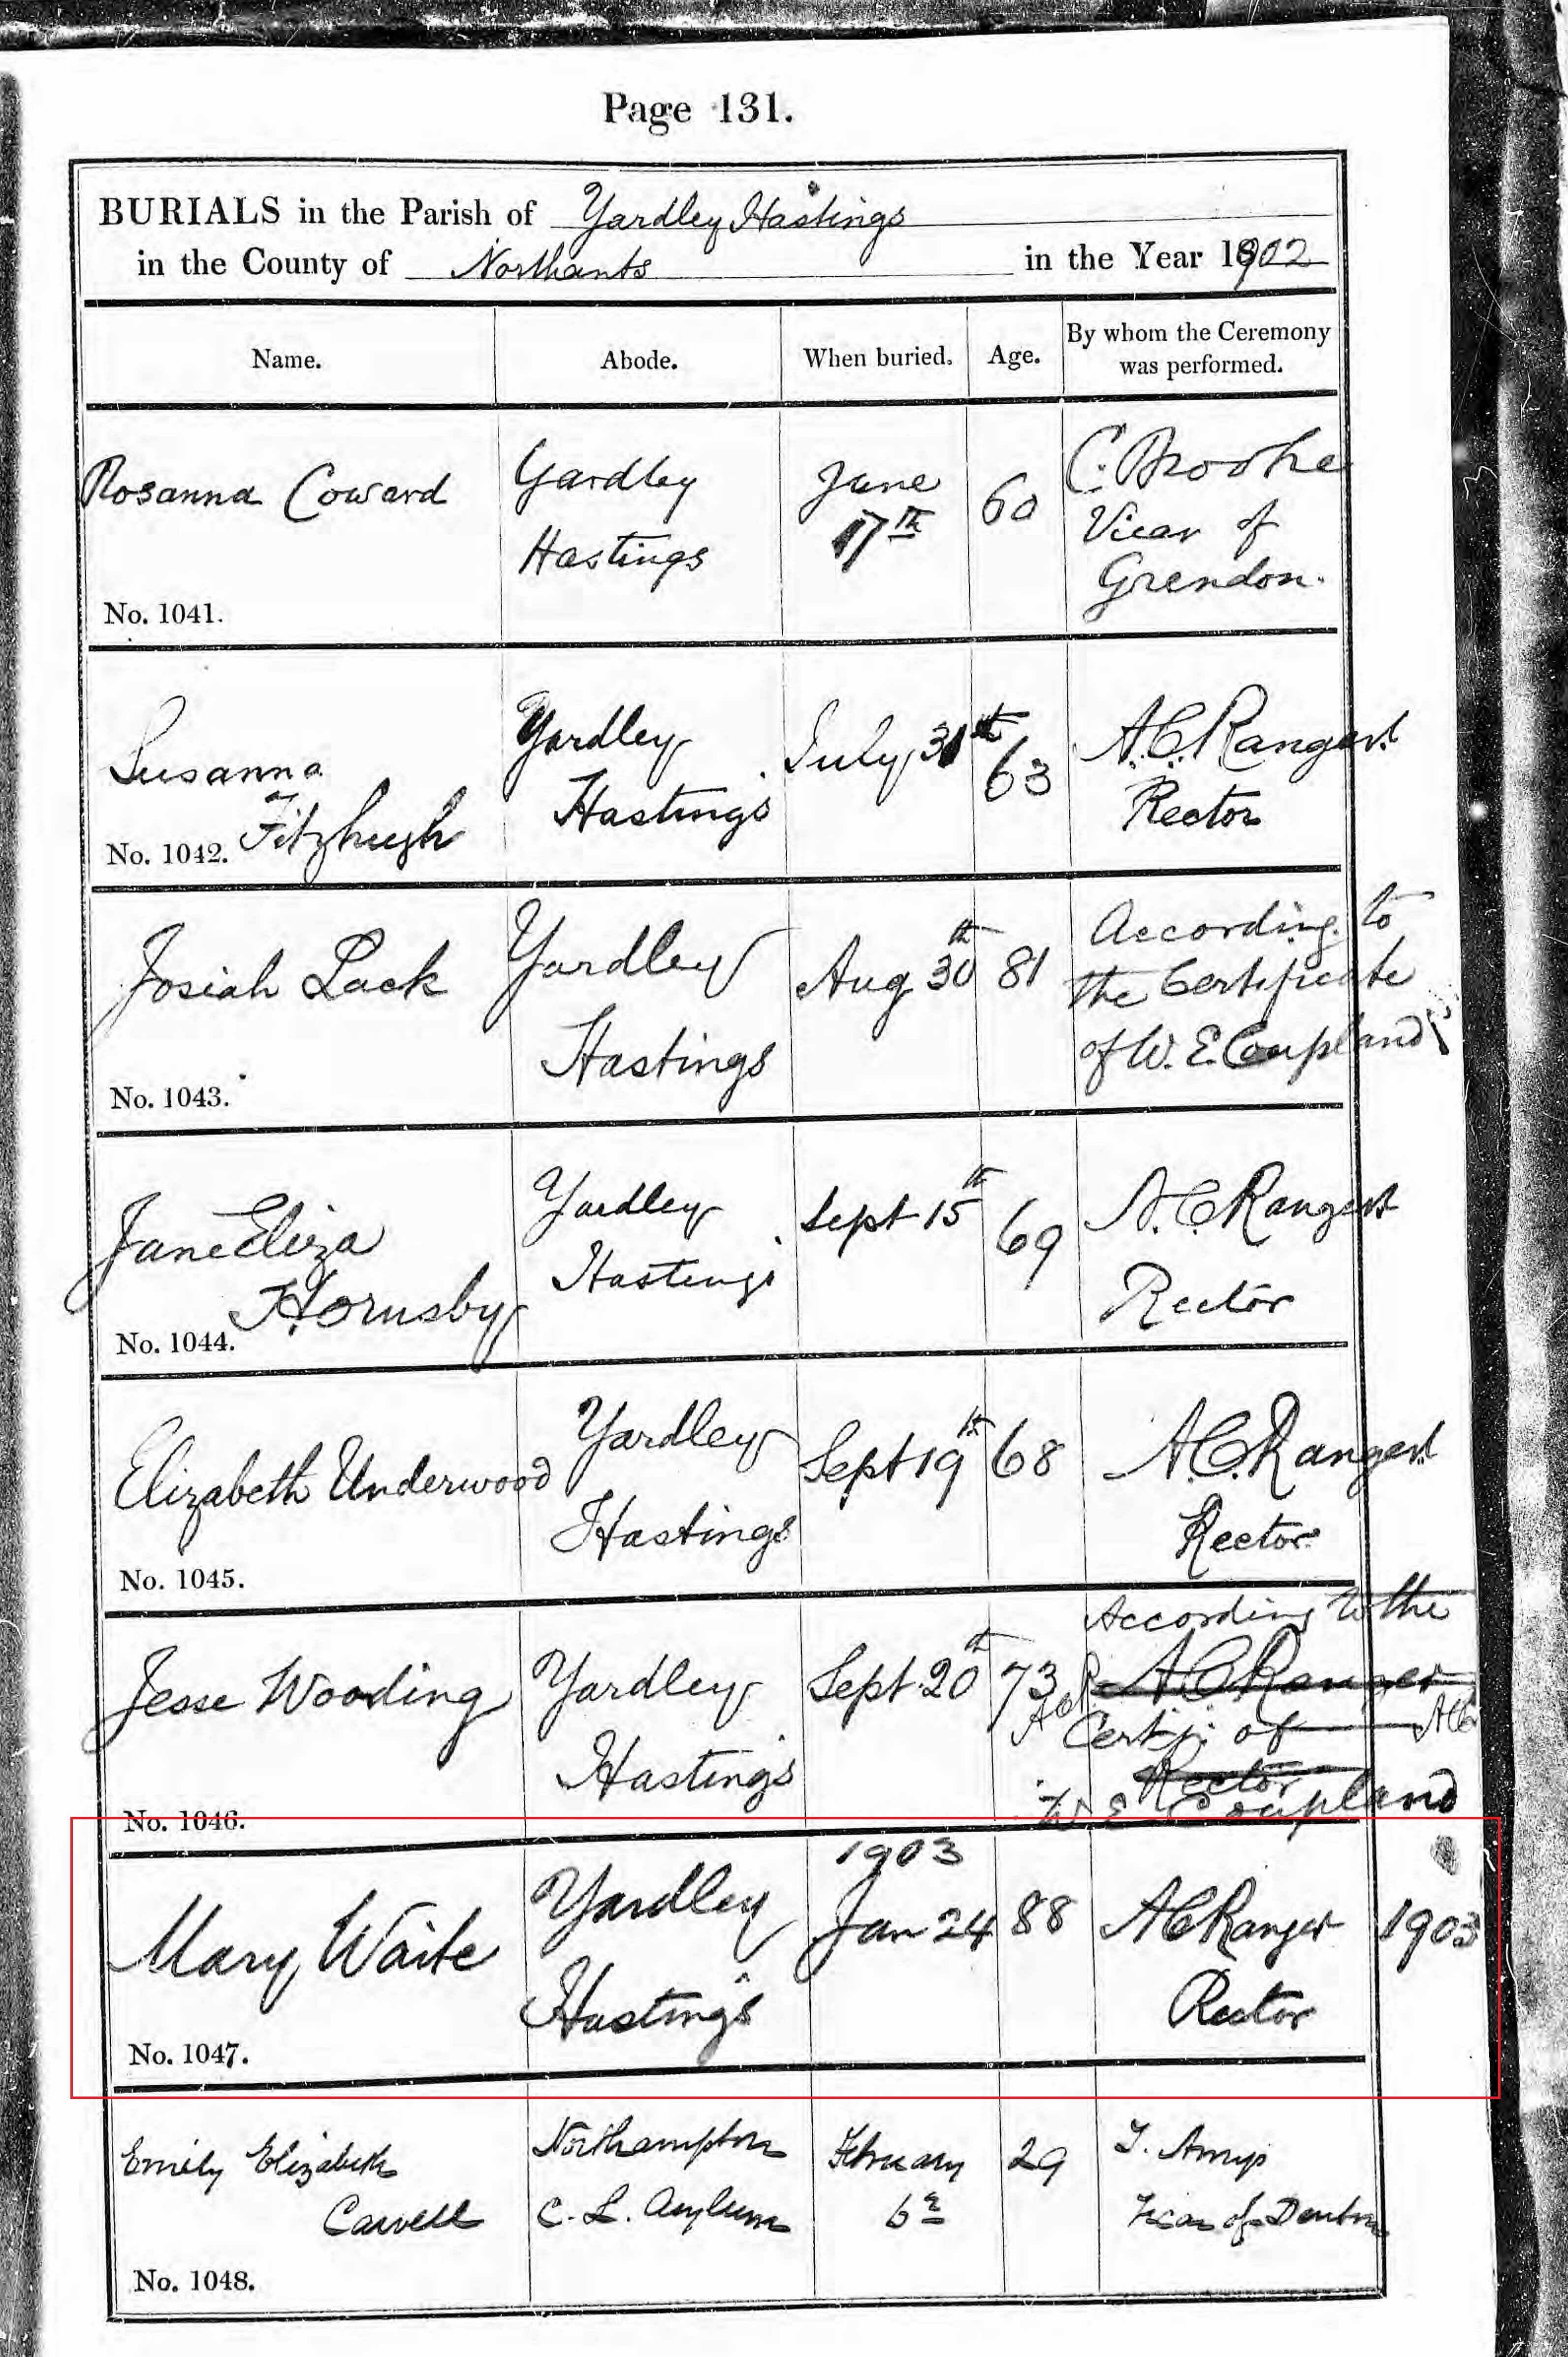 Page 131.
BURIALS in the Parish of Yardley Hastings
in the County of Northants in the Year 1902
Name. Abode. When buried. Age. By whom the Ceremony was performed.
Rosanna Coward
Yardley
Hastings
June
17th
60
C. Brooke
Vicar of
Grendon.
No. 1041.
Susanna
Fitzhugh
Yardley
Hastings
July 31st
63
A.C. Ranger
Rector
No. 1042.
Josiah Lack
Yardley
Hastings
Aug 30th
81
According to
the Certificate
of W. E. Coupland
No. 1043.
Jane Eliza
Hornsby
Yardley
Hastings
Sept 15th
69
A.C. Ranger
Rector
No. 1044.
Elizabeth Underwood
Yardley
Hastings
Sept 19th
68
A.C. Ranger
Rector
No. 1045.
Jesse Wooding
Yardley
Hastings
Sept. 20th
73
According to the
A C Ranger
Certif: of
Rector
W E Coupland
No. 1046.
Mary Waite
Yardley
Hastings
1903
Jan 24
88
A C Ranger
Rector
1903
No. 1047.
Emily Elizabeth
Carvell
Northampton
C. L. Asylum
February
6
29
Vicar of Denton
No. 1048.